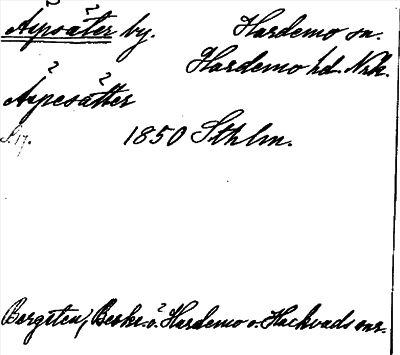 Aspsäter by. Hardemo sn.
Hardemo hd. Nrk.
Aspesätter
S. 17. 1850 Sthlm.
Bergsten, Beskr. ö. Hardemo o. Hackvads snr.